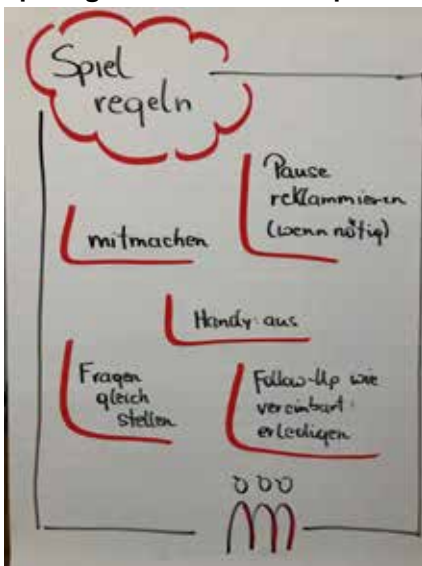 Spiel
regeln
Pause
reklammieren
(wenn nötig)
mitmachen
Handy aus
Fragen
gleich
stellen
Follow-Up wie
vereinbart
erledigen